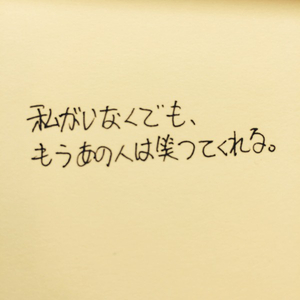 私がいなくでも、
もうあの人は笑つてくれる。